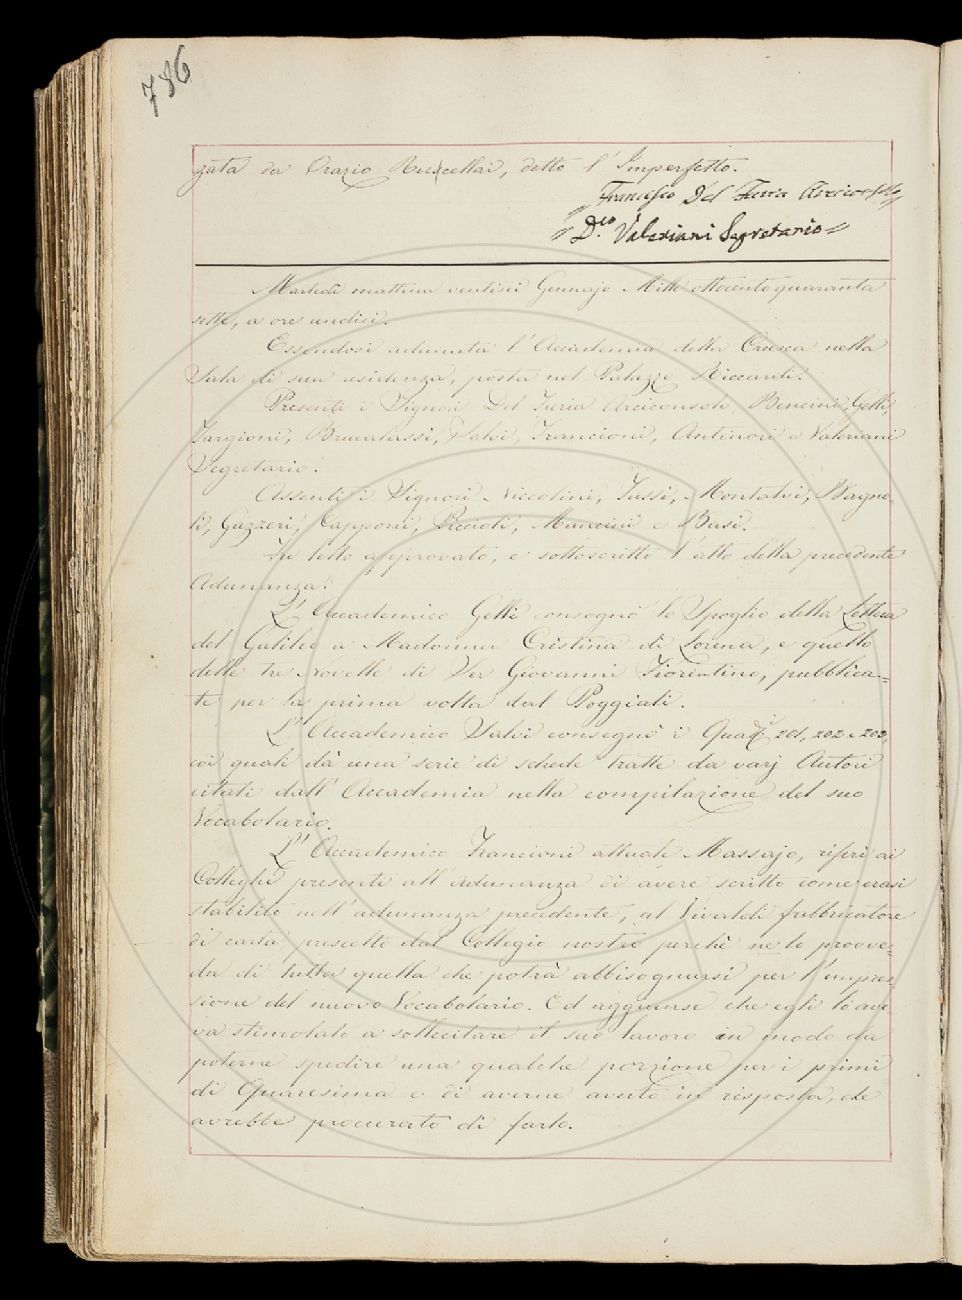 786
zata da Orazio Rucellai, detto l'Imperfetto.
Francesco Del Furia Arciconsolo
D.co Valeriani Segretario
Martedì mattina ventisei Gennajo Mille ottocento quaranta
sette, a ore undici.
Essendosi adunata l'Accademia della Crusca nella
Sala di sua residenza, posta nel Palazzo Riccardi.
Presenti i Signori Del Furia Arciconsolo, Bencini, Gelli,
Targioni, Brunalassi, Salvi, Francioni, Antinori e Valeriani
Segretario.
Assenti i Signori Niccolini, Tassi, Montalvi, Bagno
li, Gazzeri, Capponi, Piccioli, Mancini e Busi.
Fu letto approvato, e sottoscritto l'atto della precedente
Adunanza.
L'Accademico Gelli consegnò lo Spoglio della Lettera
del Galileo a Madonna Cristina di Lorena, e quello
delle tre Novelle di Ser Giovanni Fiorentino, pubblica=
te per la prima volta dal Poggiali.
L'Accademico Salvi consegnò i Quad.i 201, 202 e 203,
coi quali dà una serie di schede tratte da varj Autori
citati dall'Accademia nella compilazione del suo
Vocabolario.
L'Accademico Francioni attuale Massajo, riferì ai
Colleghi presenti all'adunanza di avere scritto come erasi
stabilito nell'adunanza precedente, al Vivaldi fabbricatore
di carta prescelto dal Collegio nostro perchè ne lo provve=
da di tutta quella che potrà abbisognarsi per l'impres=
sione del nuovo Vocabolario. Ed aggiunse che egli lo ave
va stimolato a sollecitare il suo lavoro in modo da
poterne spedire una qualche porzione per i primi
di Quaresima e di averne avuto in risposta, che
avrebbe procurato di farlo.